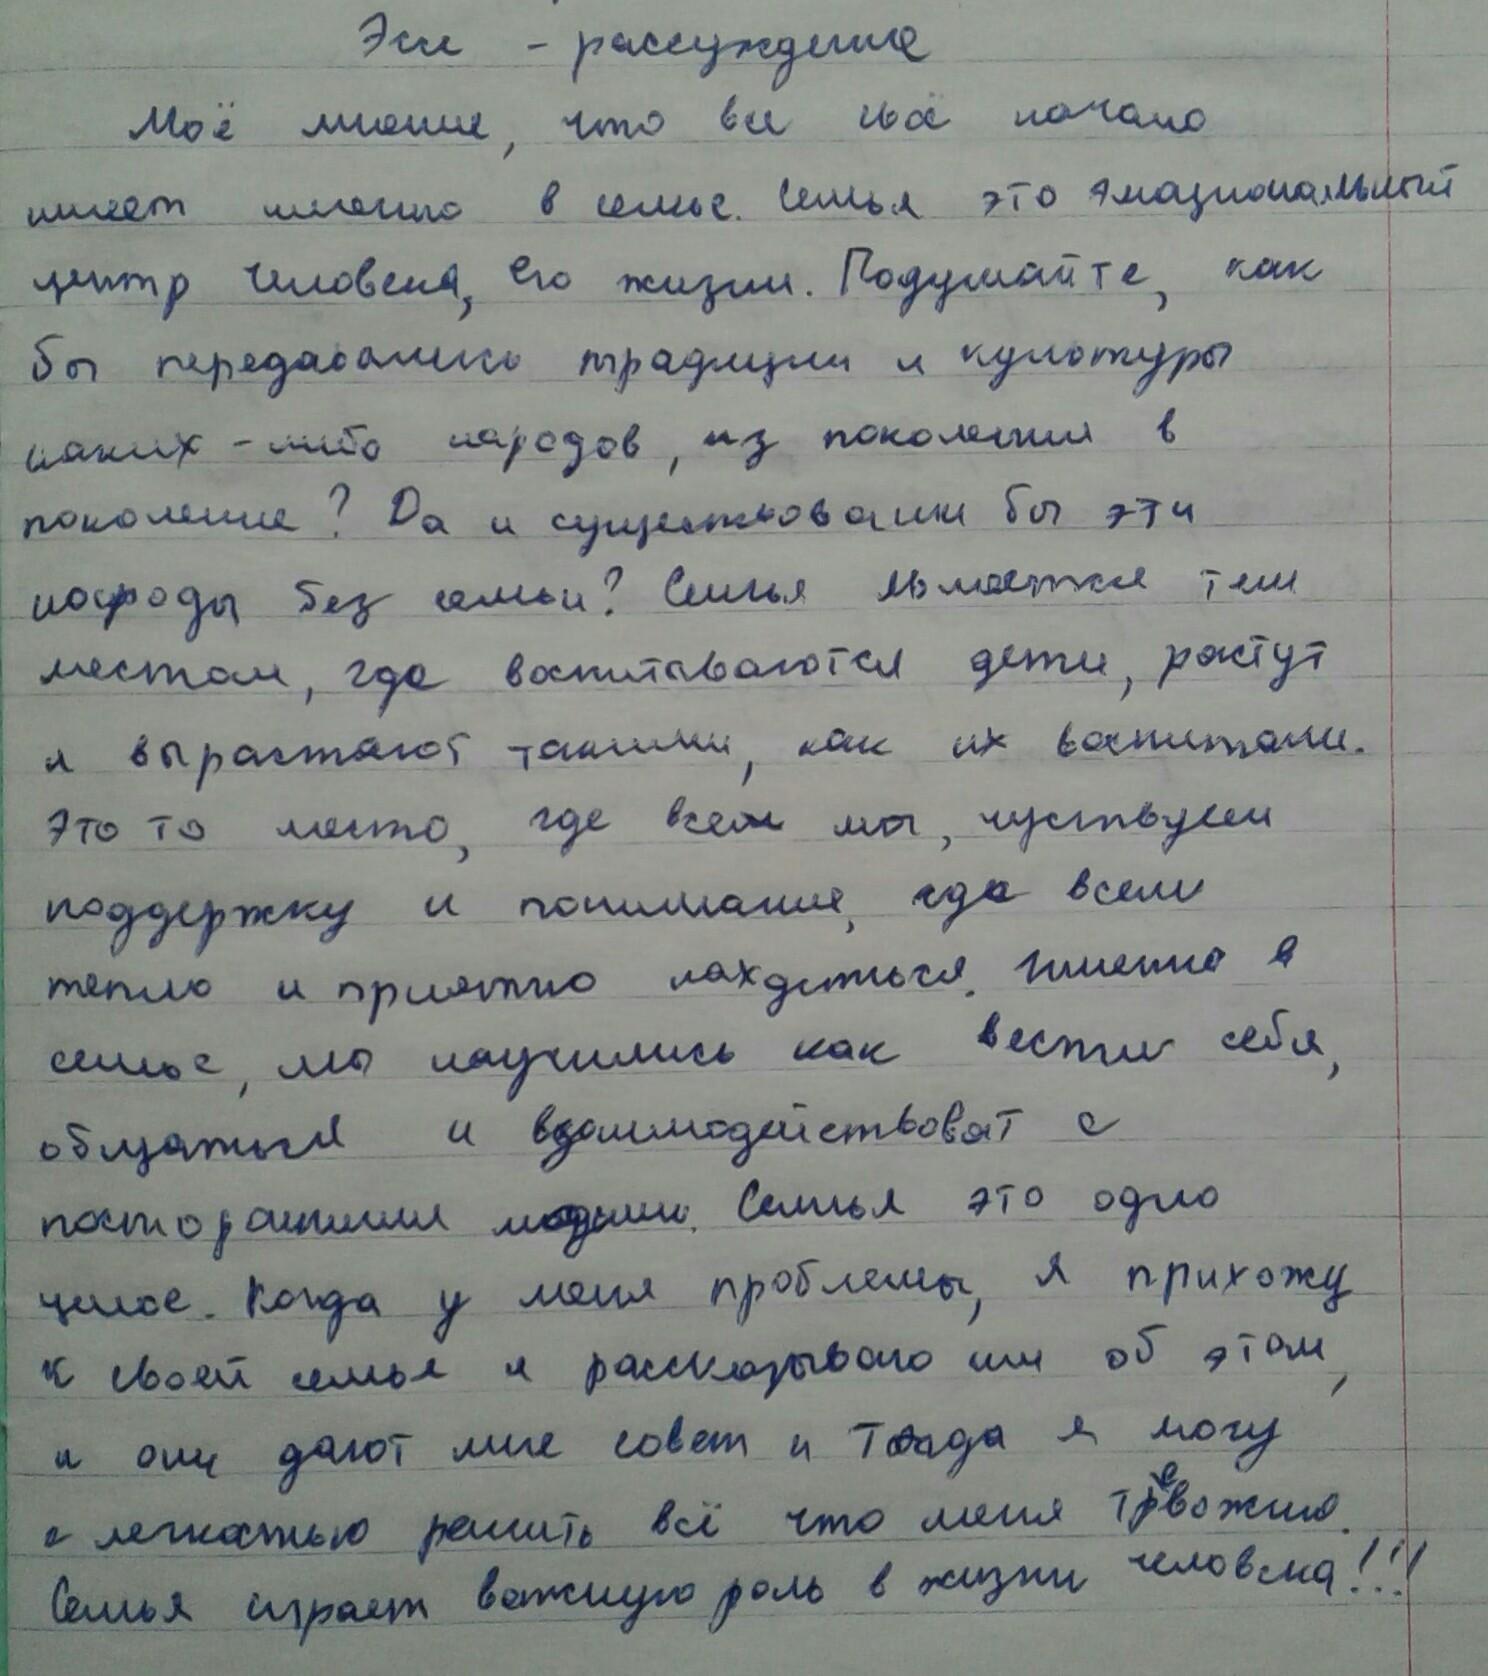 Эссе - рассуждение
Моё мнение, что все своё начало
имеет именно в семье. Семья это эмациональный
центр человека, его жизни. Подумайте, как
бы передавались традиции и культуры
каких-либо народов, из поколения в
поколение? Да и существовали бы эти
народы без семьи? Семья является тем
местом, где воспитываются дети, растут
и вырастают такими, как их воспитали.
Это то место, где всем мы, чуствуем
поддержку и понимание, где всем
тепло и приятно находиться. Именно в
семье, мы научились как вести себя,
общаться и взаимодействоват с
посторанними людьми. Семья это одно
целое. Когда у меня проблемы, я прихожу
к своей семье и рассказываю им об этом,
и они дают мне совет и тогда я могу
с легкостью решить всё что меня тревожило.
Семья играет важную роль в жизни человека!!!